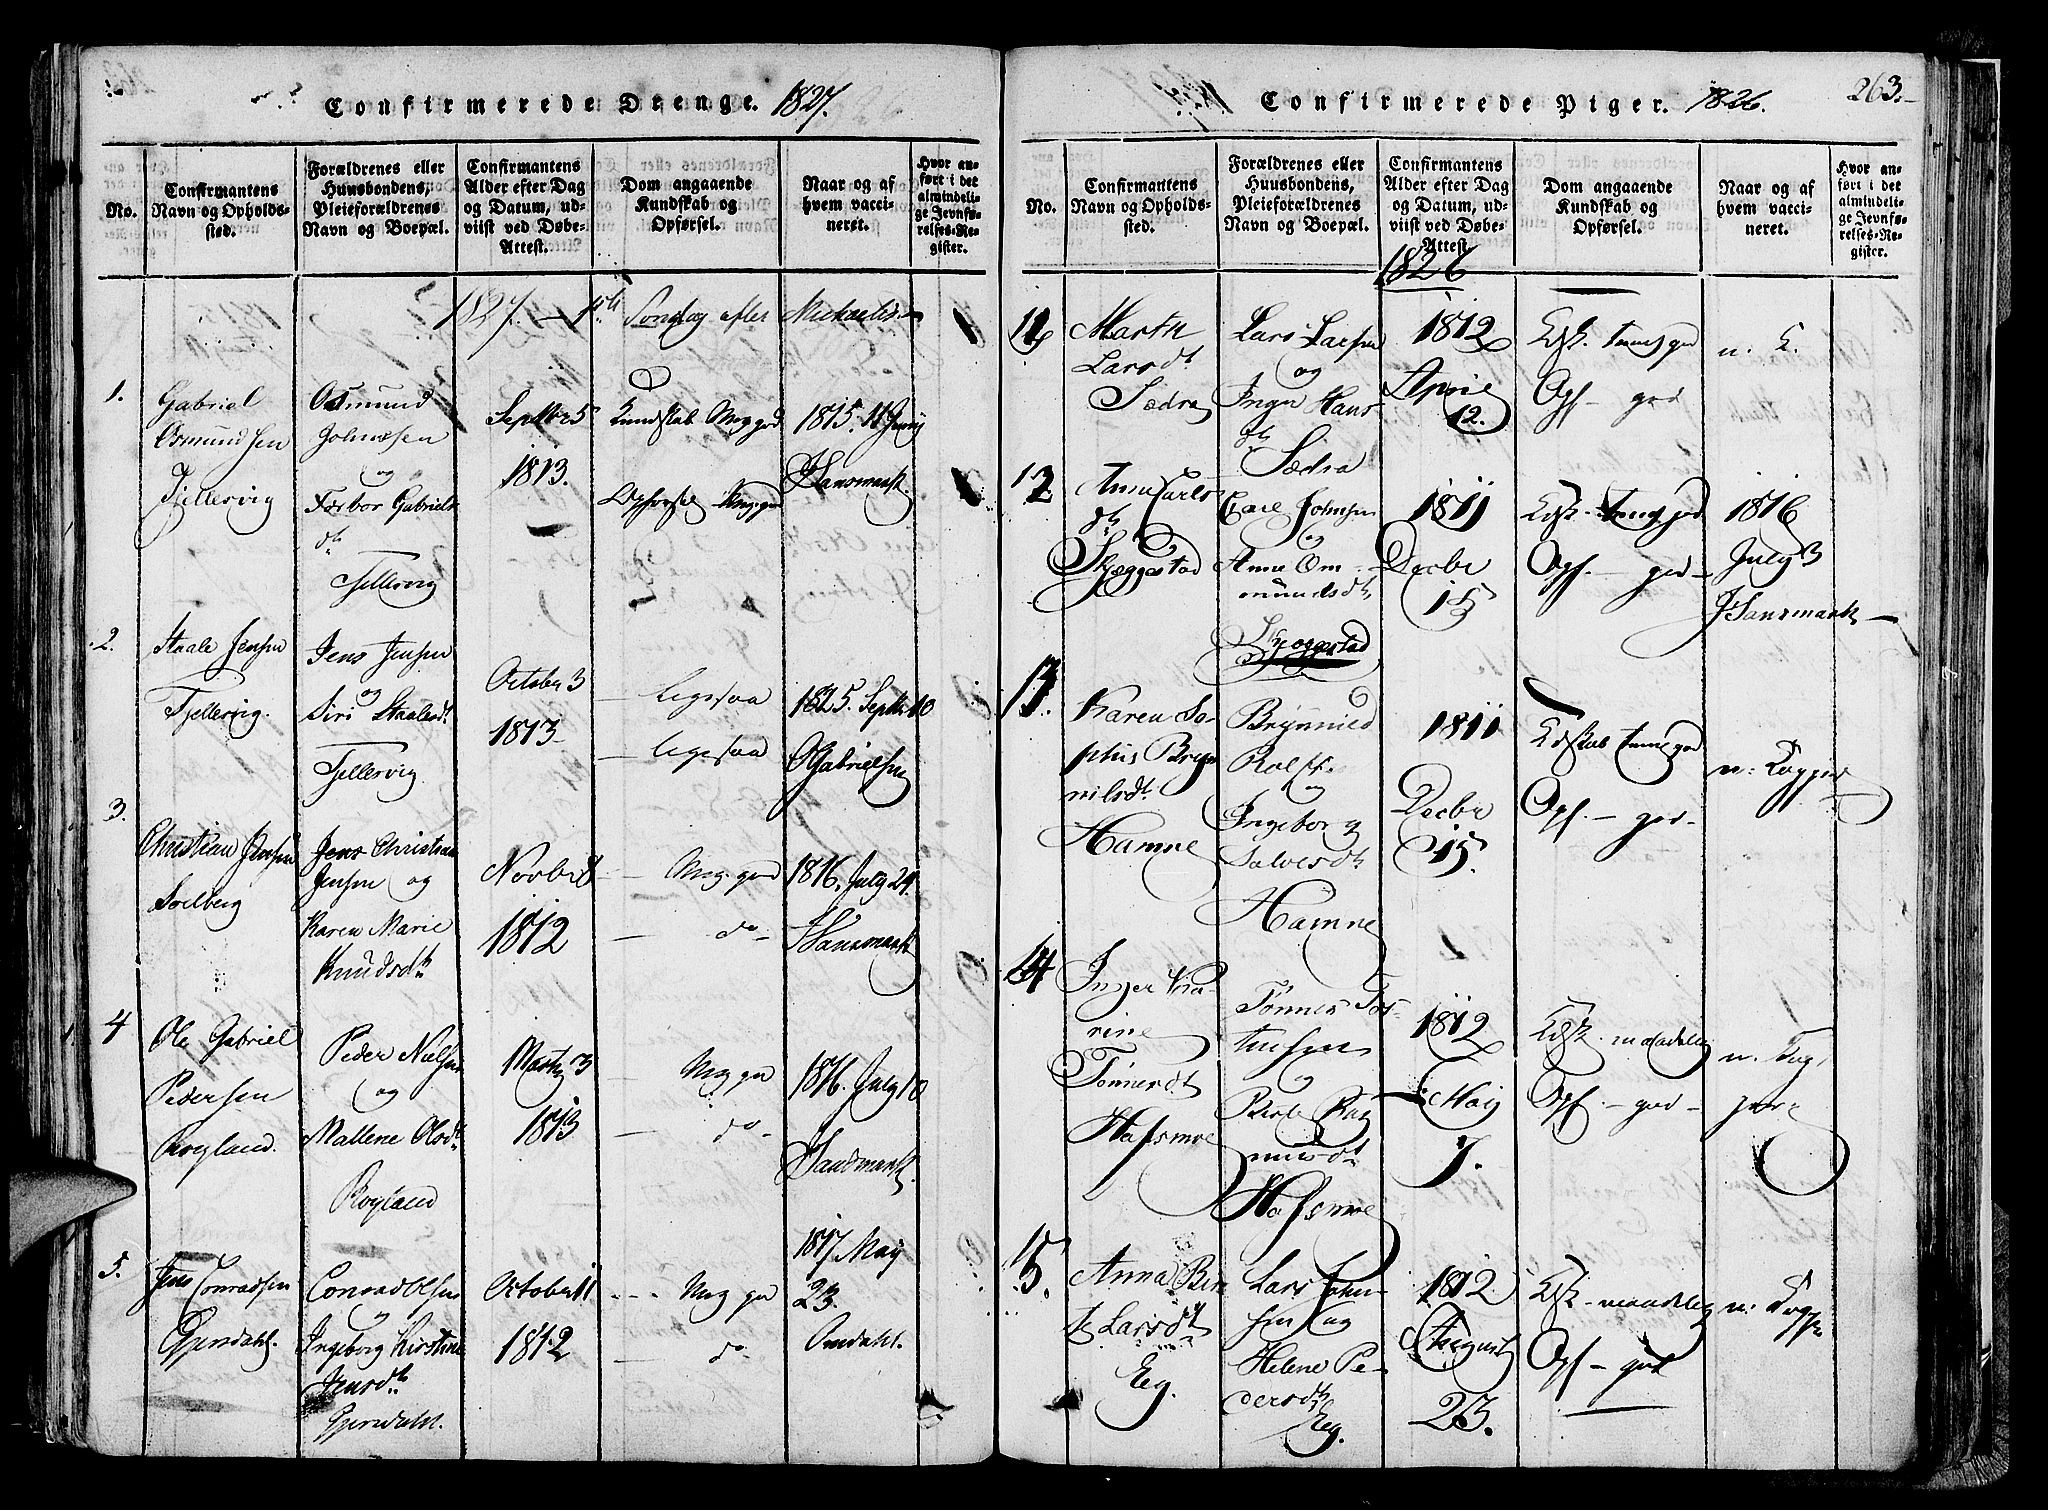 Confirmerede Drenge. 1827.
No.
Confirmantens
Navn og Opholds-
sted.
Forældrenes eller
Huusbondens,
Pleieforældrenes
Navn og Boepæl.
Confirmantens
Alder efter Dag
og Datum, ud-
viist ved Døbe-
Attest.
Dom angaaende
Kundskab og
Opførsel.
Naar og af
hvem vacci-
neret.
Hvor an-
ført i det
almindeli-
ge Jevnfø-
relses-Re-
gister.
1827. Søndag efter Michaelis
1.
Gabriel
Osmundsen
Tjellervig
Osmund
Johnesen
og
Gabriels
dtr
Tjellervig
Septbr 5
1813.
Kundskab Meg god
Opførsel Meg god
1815. 11 Juny
Hansmark
2.
Staale Jensen
Tjellervig.
Jens Jensen
og
Siri Staalesdt
Tjellervig
October 3
1813
ligesaa
ligesaa
1825. Septbr 10
O Gabrielsen
3.
Christian Jensen
Soelberg
Jens Christian
Jensen og
Karen Marie
Knudsdtr
Novbr 8
1812
Meg. god
do
1816. July 24.
Hansmark
4
Ole Gabriel
Pedersen
Røyland.
Peder Nielsen
og
Mallene Olsdt
Røyland
Marty 3
1813
Meg god
do
1816. July 10
Hansmark.
5.
Jens Conradsen
Gjerdahl.
Conrad Olsen
Ingeborg Kirstine
Jensdtr
Gjerdahl.
October 11
1812
Meg god
do
1817 May
23.
Omdahl.
Confirmerede Piger. 1826. 263.
No.
Confirmantens
Navn og Opholds-
sted.
Forældrenes eller
Huusbondens,
Pleieforældrenes
Navn og Boepæl.
Confirmantens
Alder efter Dag
og Datum, ud-
viist ved Døbe-
Attest
Dom angaaende
Kundskab og
Opførsel.
Naar og af
hvem vacci-
neret.
Hvor an-
ført i det
almindeli-
ge Jevnfø-
relses-Re-
gister.
1826
11
Larsdt
Sædra
Lars Larsen
og
Hans
dtr
Sædra
1812
April
12.
Opf god
n. K.
12
Anne Carls
dtr
Skjeggestad
Carl Johnsen
og
Anne Om
mundsdtr
Skjeggestad
1811
Decbr
15
Opf. god
1816
July 3
Hansmark
13.
Karen So-
phie Bryn
nilsdt
Hamne
Brynnild
og
Ingeborg
Salvesdtr
Hamne
1811
Decbr
15.
Opf. god
n. Kopper
14
Inger Ka-
rine
Tønnesdt
Hafsmoe
Tønnes
og
Hafsmoe
1812
May
7.
Kdsk. maadelig
Opf. god
15.
Anna
Larsdt
Eeg.
Lars John-
sen og
Helene Pe-
dersdtr
Eeg.
1812.
August
23.
Kdsk. maadelig
Opf god
n. Kopper